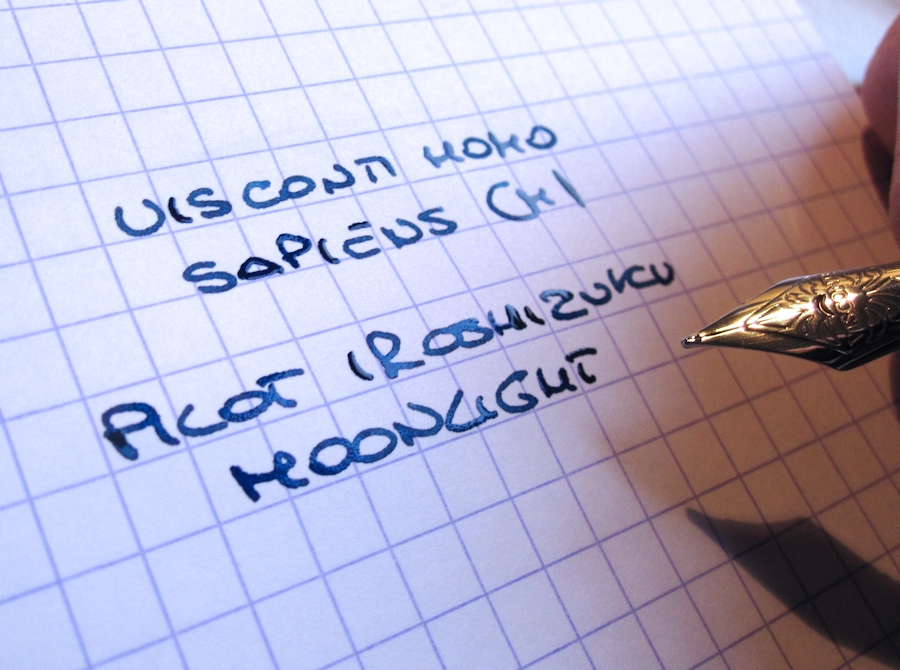 VISCONTI HOMO
SAPIENS (M)
PILOT IROSHIZUKU
MOONLIGHT